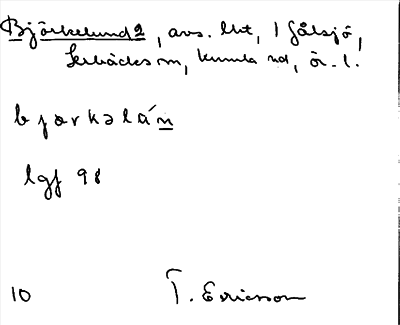 Björkelund 2, avs. lht, 1 Gålsjö,
Lerbäcks sn, Kumla hd, Ör. l.
bjærkəlán
lgf 98
10 T. Ericsson